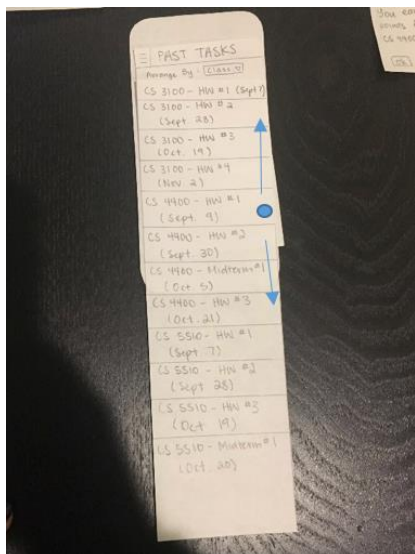 PAST TASKS
Arrange By: Class
CS 3100 - HW #1 (Sept 7)
CS 3100 - HW #2
(Sept. 28)
CS 3100 - HW #3
(Oct. 19)
CS 3100 - HW #4
(Nov. 2)
CS 4400 - HW #1
(Sept. 9)
CS 4400 - HW #2
(Sept. 30)
CS 4400 - Midterm #1
(Oct. 5)
CS 4400 - HW #3
(Oct. 21)
CS 5510 - HW #1
(Sept 7)
CS 5510 - HW #2
(Sept 28)
CS 5510 - HW #3
(Oct 19)
CS 5510 - Midterm #1
(Oct. 20)
You
CS 4400
ok